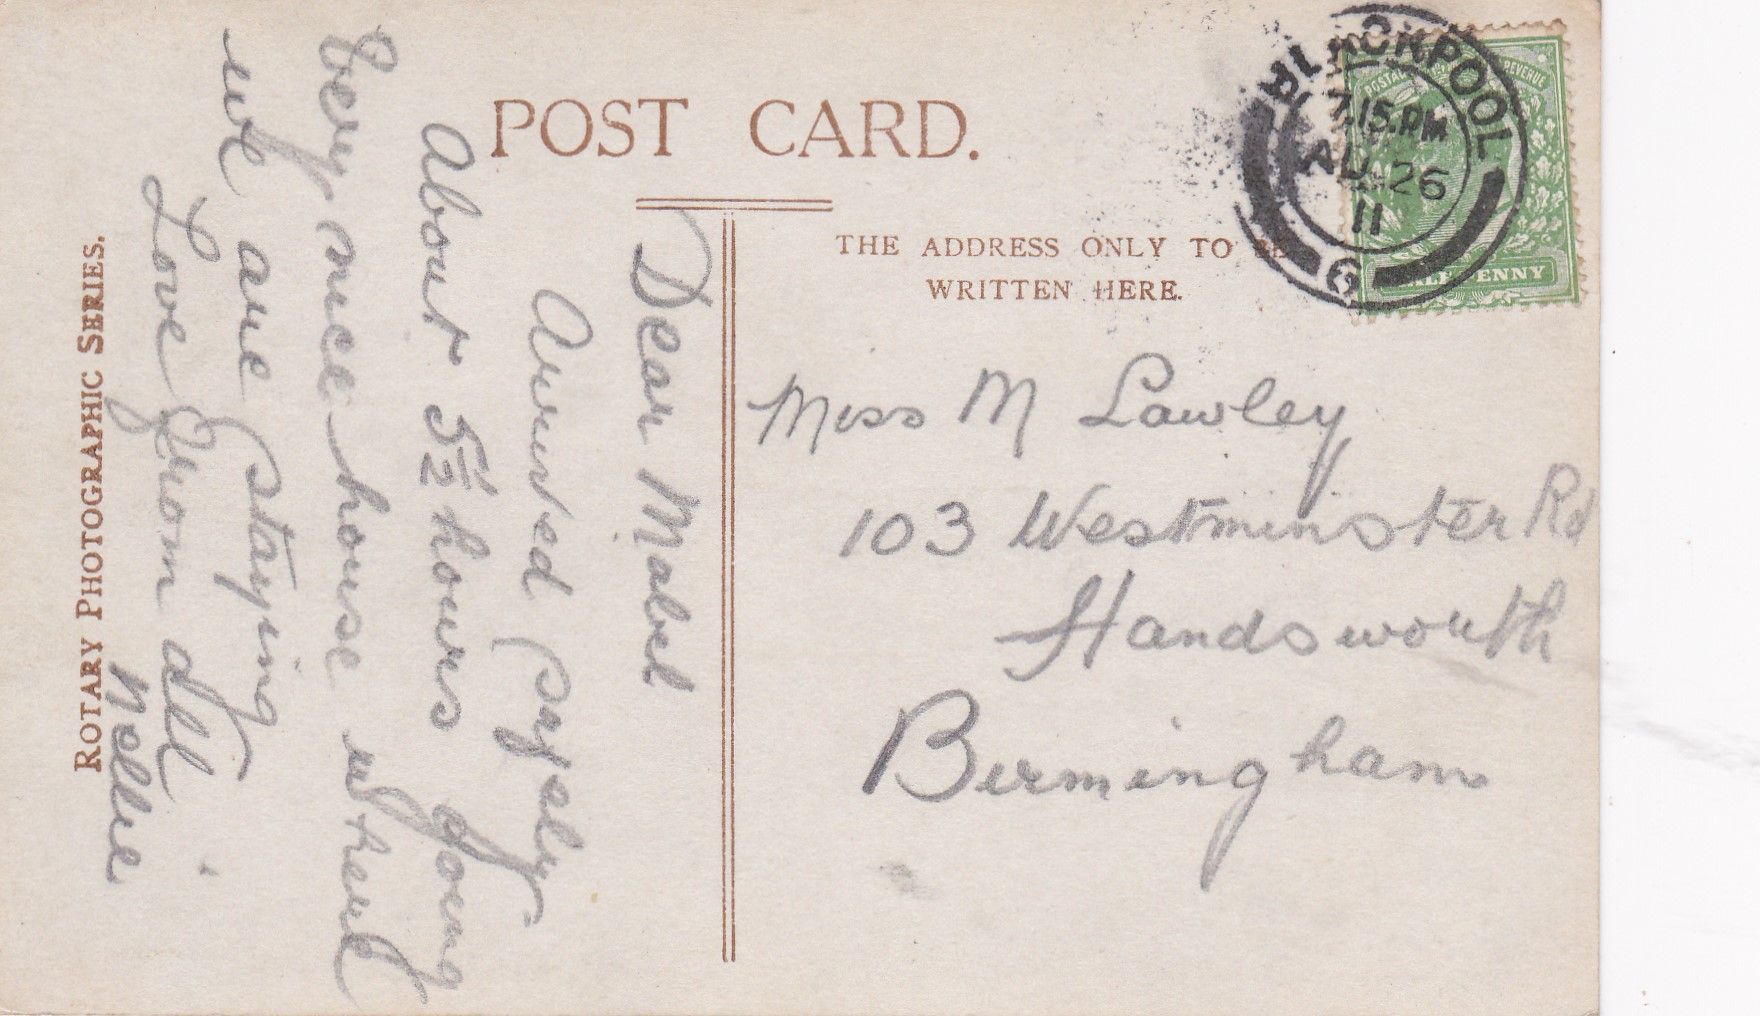 POST CARD.
THE ADDRESS ONLY TO BE
WRITTEN HERE.
BLACKPOOL
7.15.PM
AU 26
11
6
POSTAGE REVENUE
HALF PENNY
Miss M Lawley
103 Westminster Rd
Handsworth
Birmingham
Dear Mabel
Arrived safely
About 5½ hours going
Very nice house where
we are staying
Love from all
Nellie
ROTARY PHOTOGRAPHIC SERIES.